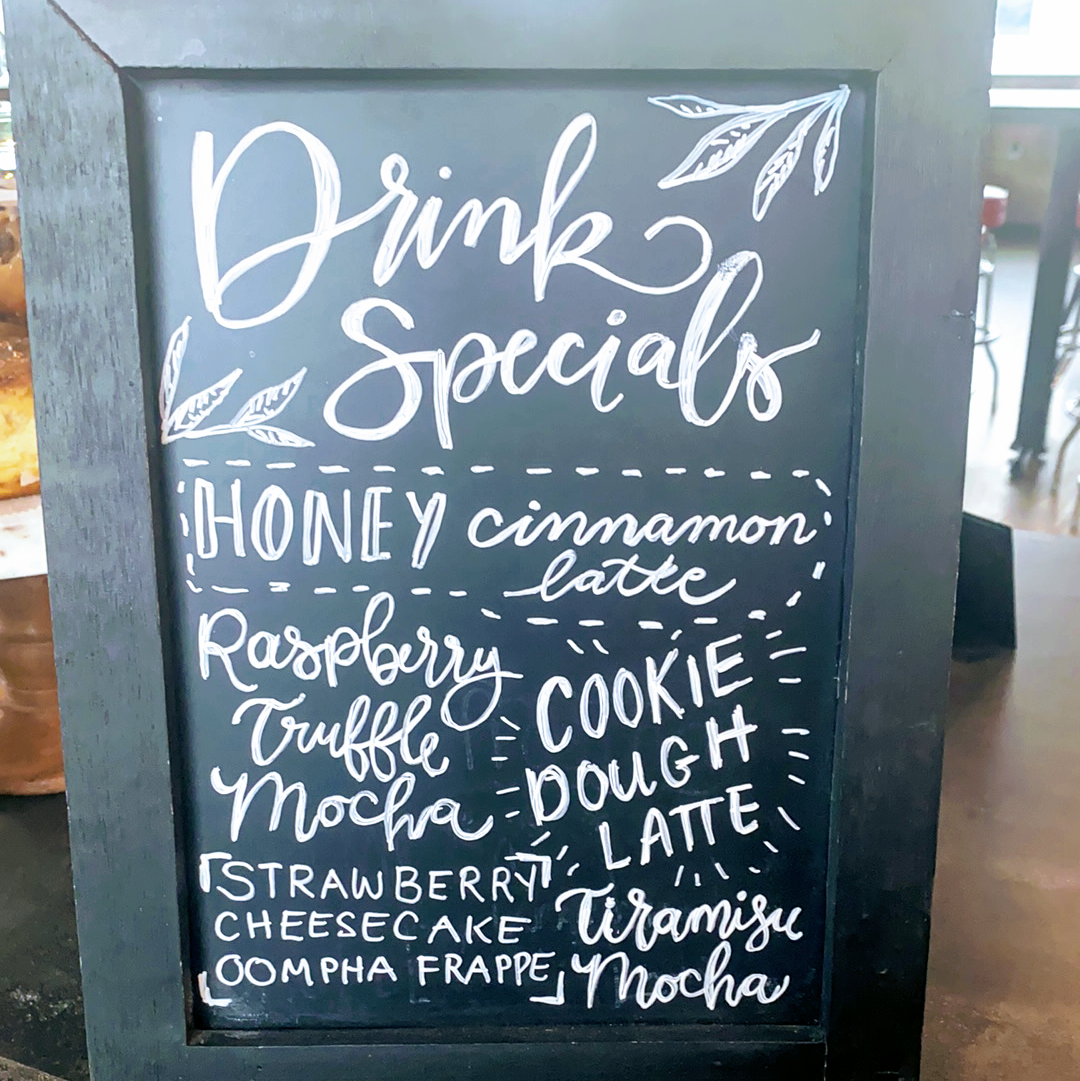 Drink
Specials
HONEY cinnamon
latte
Raspberry
Truffle
Mocha
COOKIE
DOUGH
LATTE
STRAWBERRY
CHEESECAKE
OOMPHA FRAPPE
Tiramisu
Mocha